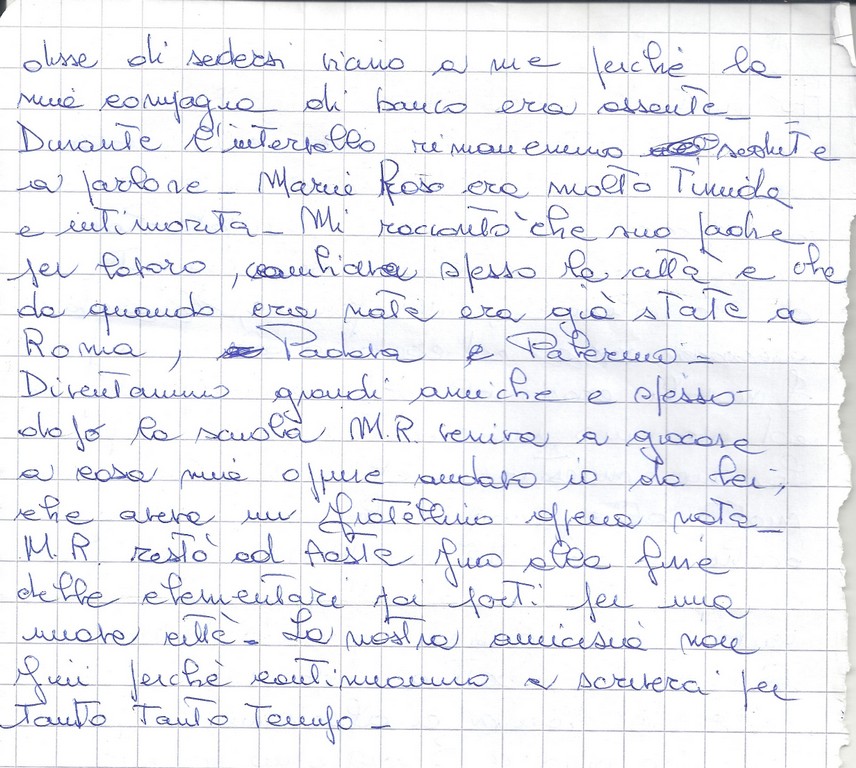 disse di sedersi vicino a me perchè la
mia compagna di banco era assente_
Durante l'intervallo rimanemmo sedute
a parlare_ Maria Rosa era molto timida
e intimorita_ Mi raccontò che suo padre
per lavoro, cambiava spesso la città e che
da quando era nata era già stata a
Roma, Padova e Palermo_
Diventammo grandi amiche e spesso
dopo la scuola M.R. veniva a giocare
a casa mia oppure andavo io da lei,
che aveva un fratellino appena nato_
M.R. restò ad Aosta fino alla fine
delle elementari poi partì per una
nuova città_ La nostra amicizia non
finì perchè continuammo a scriverci per
tanto tanto tempo_